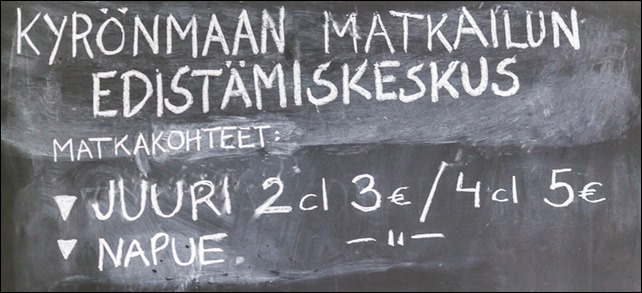 KYRÖNMAAN MATKAILUN
EDISTÄMISKESKUS
MATKAKOHTEET:
▼ JUURI 2 cl 3€ / 4 cl 5€
▼ NAPUE. —"—